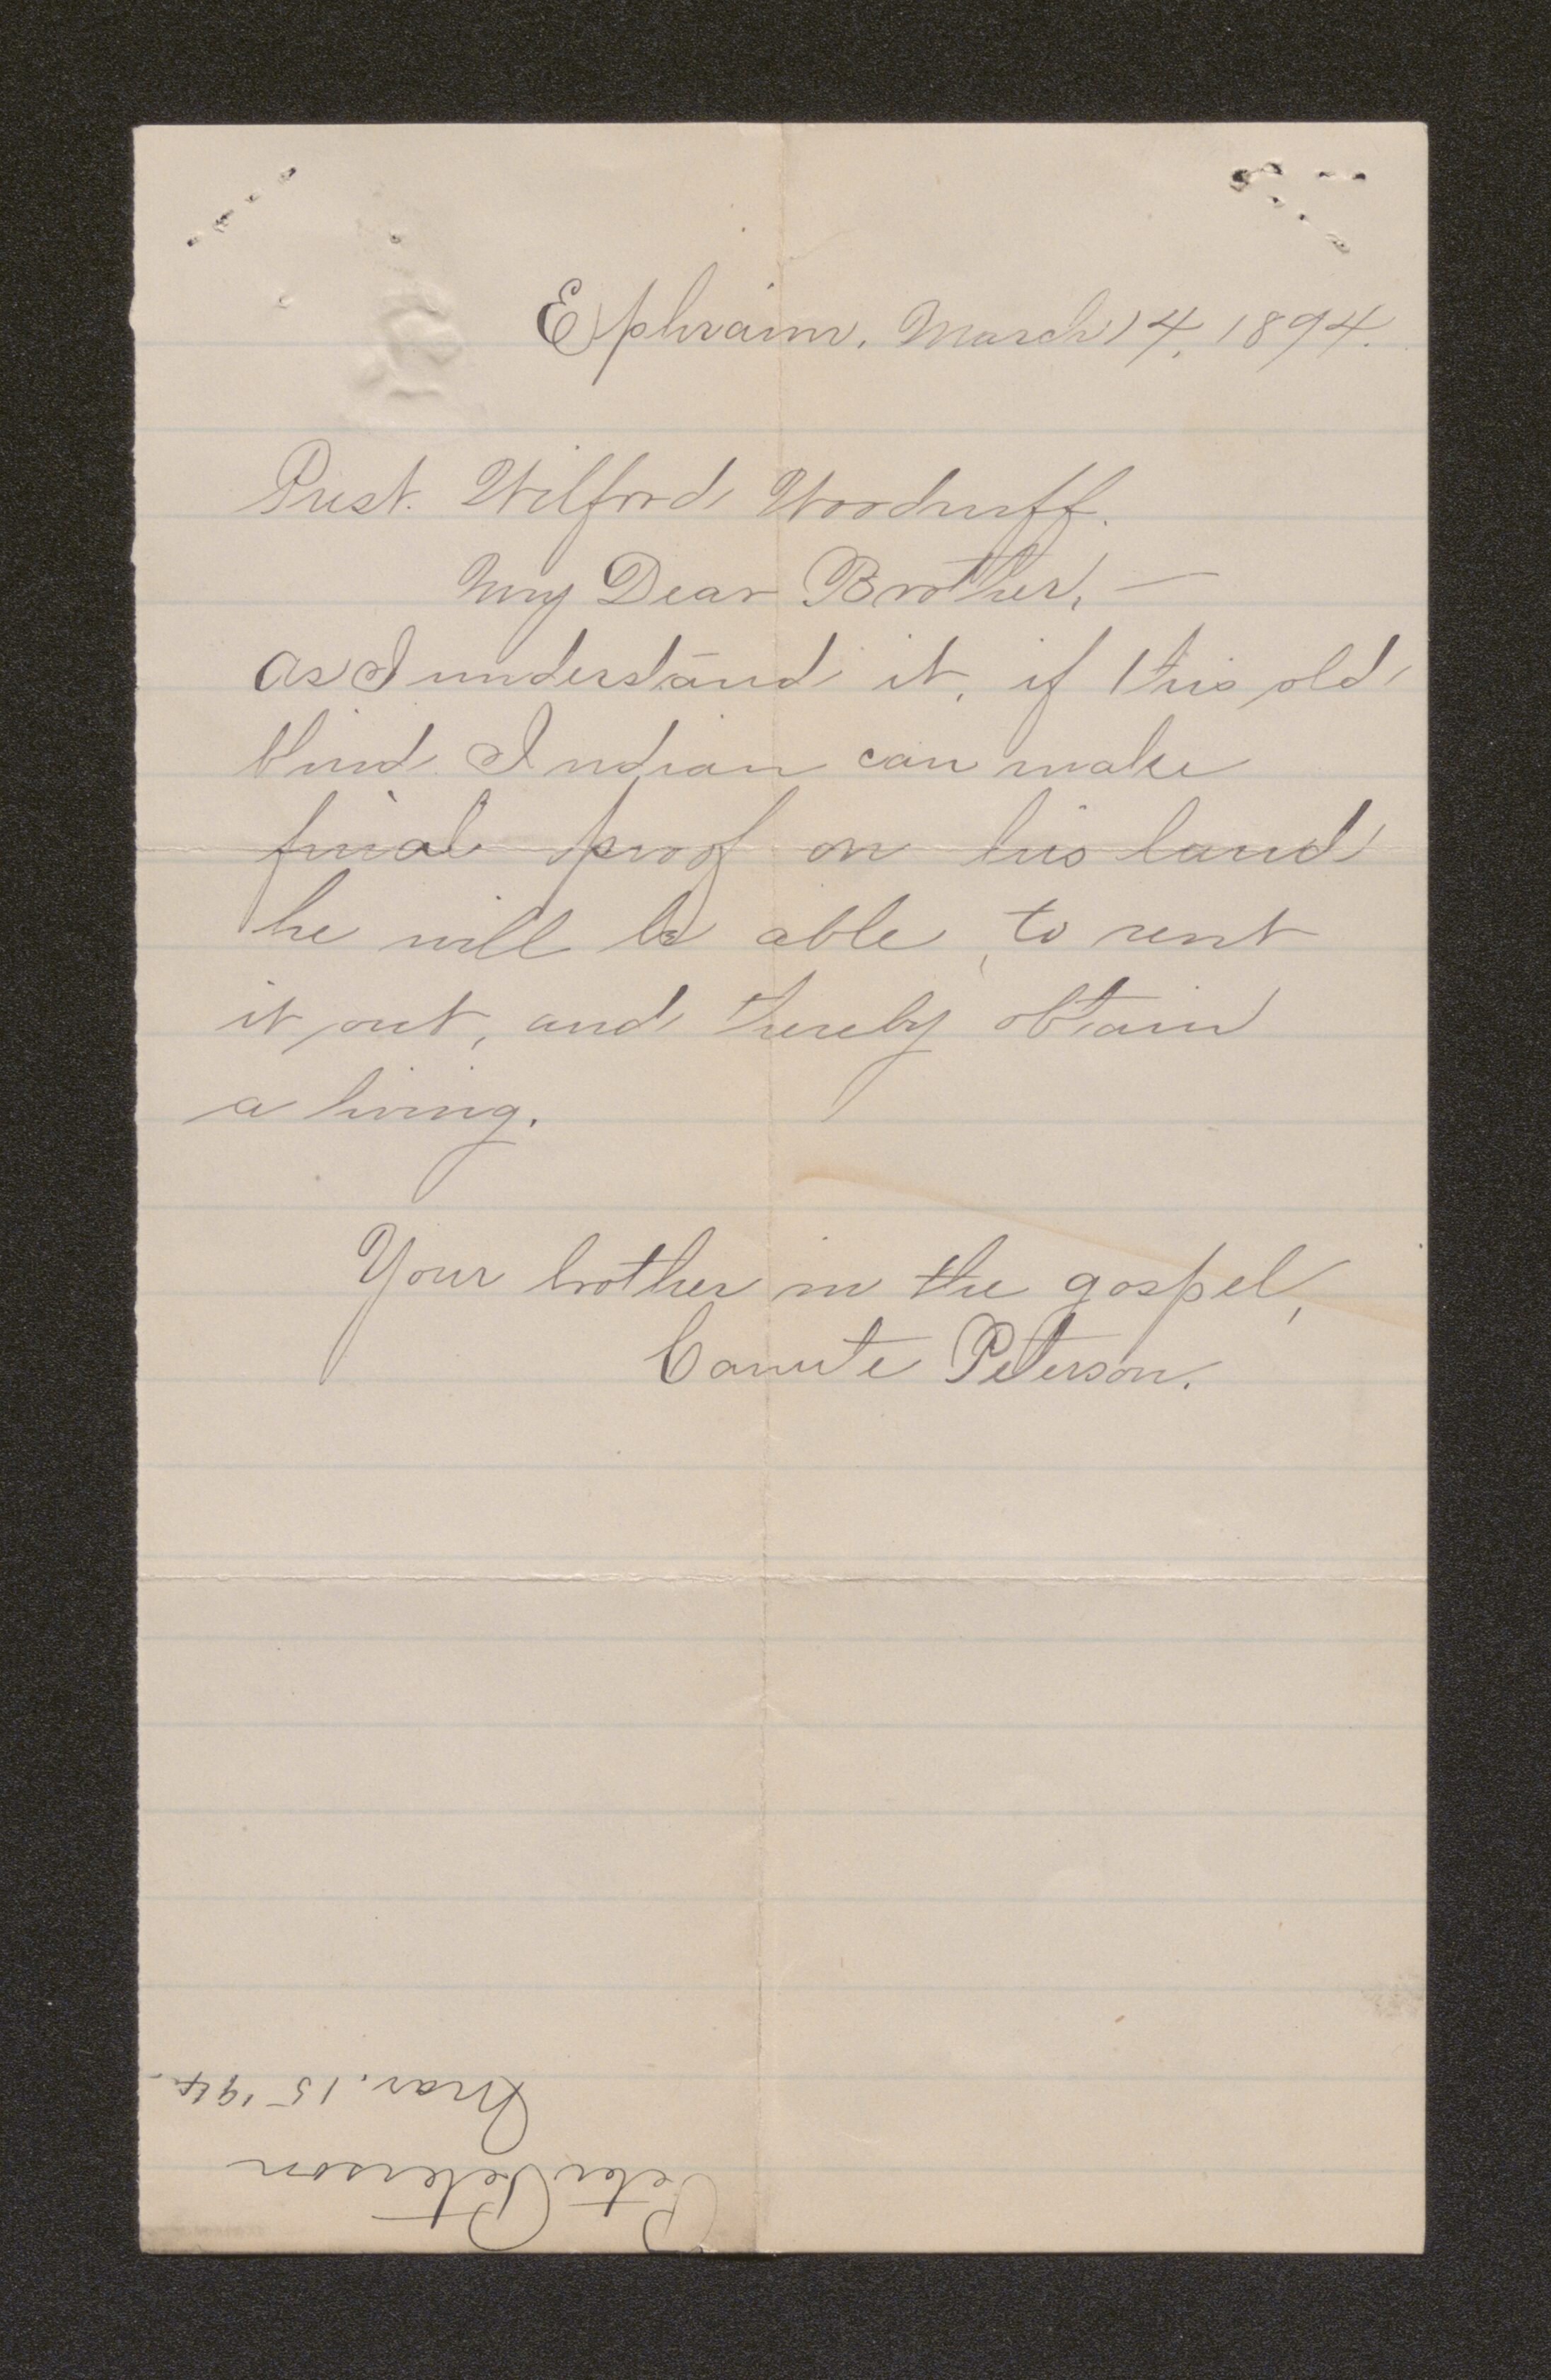 Ephraim, March 14, 1894.
Prest. Wilford Woodruff.
My Dear Brother, —
As I understand it, if this old
blind Indian can make
final proof on his land
he will be able, to rent
it out, and thereby obtain
a living.
Your brother in the gospel,
Canute Peterson.
Peter Peterson
Mar. 15 '94.